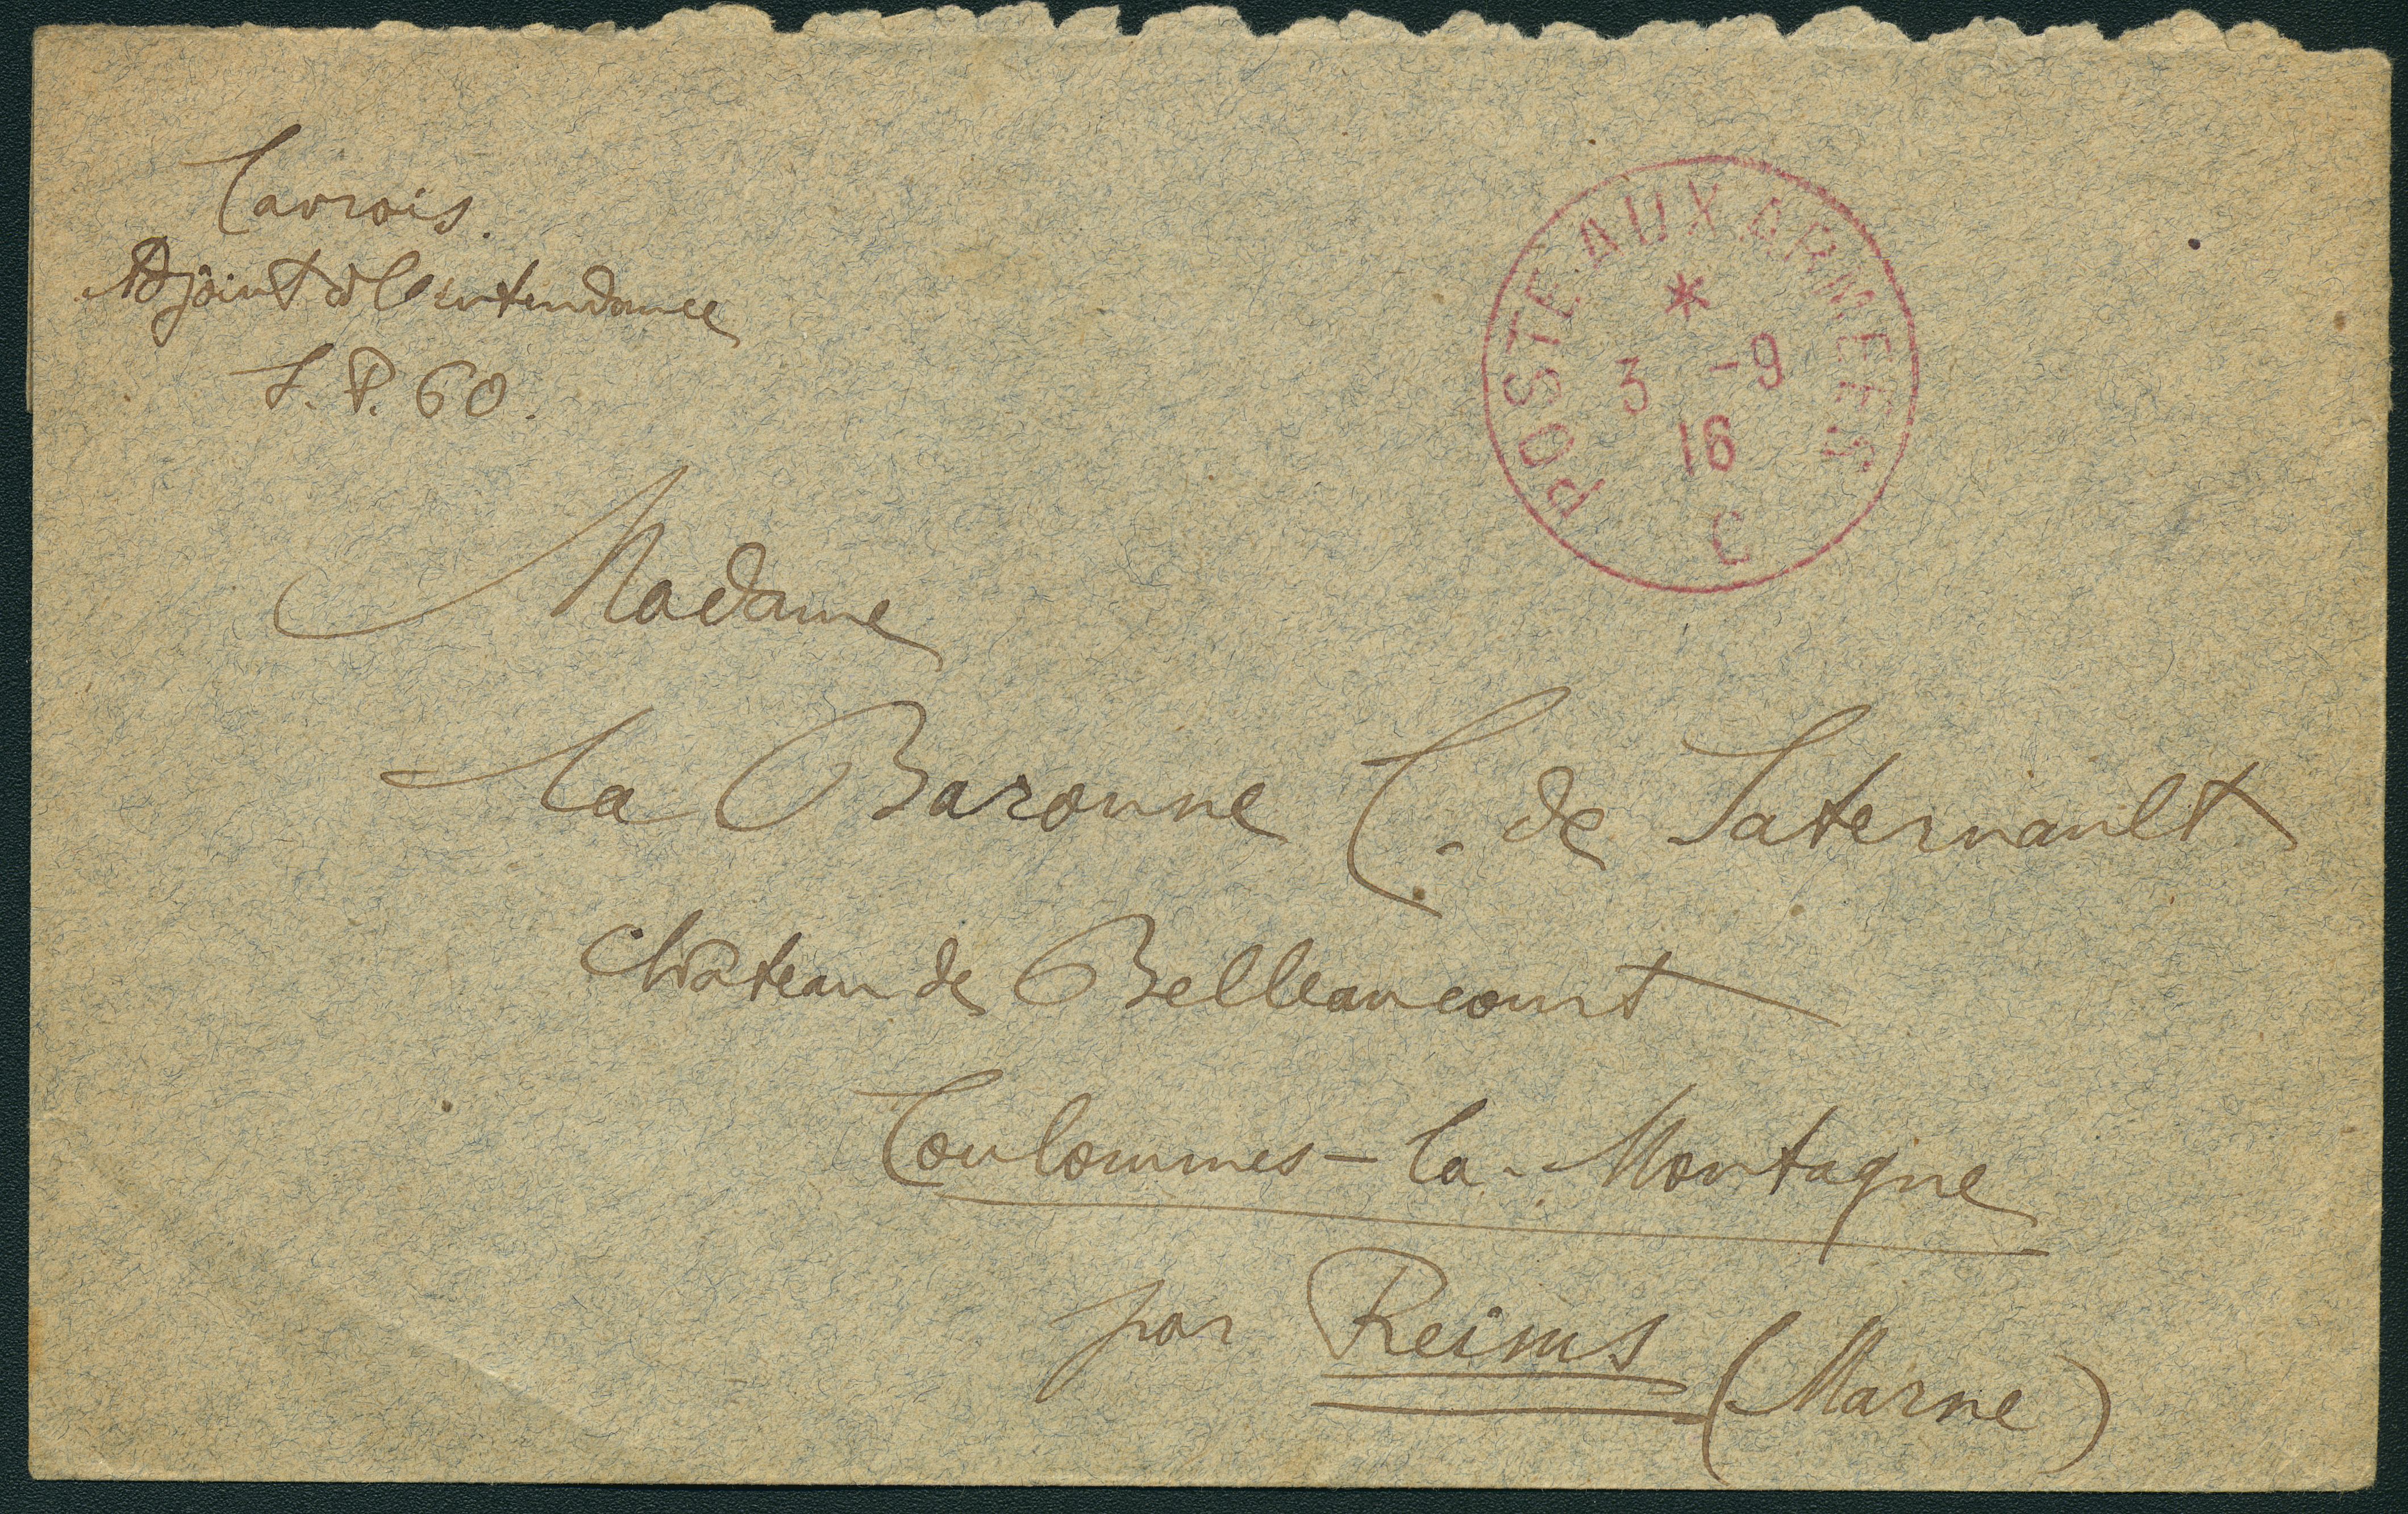 Carrois.
Adjoint à l'intendance
S. P. 60.
POSTE AUX ARMEES
*
3 -9
16
C
Madame
la Baronne C. de Saternault
Château de Belleaucourt
Coulommes-la-Montagne
par Reims (Marne)